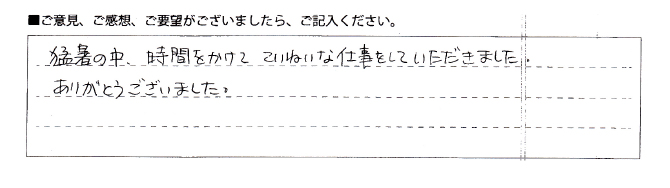 ■ご意見、ご感想、ご要望がございましたら、ご記入ください。
猛暑の中、時間をかけて ていねいな仕事をしていただきました。
ありがとうございました。